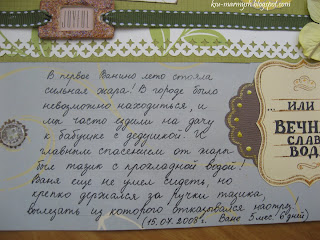 ksu-marmyth.blogspot.com
В первое Ванино лето стояла
сильная жара! В городе было
невозможно находиться, и
мы часто ездили на дачу
к бабушке с дедушкой. И
главным спасением от жары
был тазик с прохладной водой!
Ваня еще не умел сидеть, но
крепко держался за ручки тазика,
вылезать из которого отказывался наотрез!
(15.07.2008г. Ване 5 мес 6 дней)
ИЛИ
ВЕЧНАЯ
СЛАВА
ВОДЕ